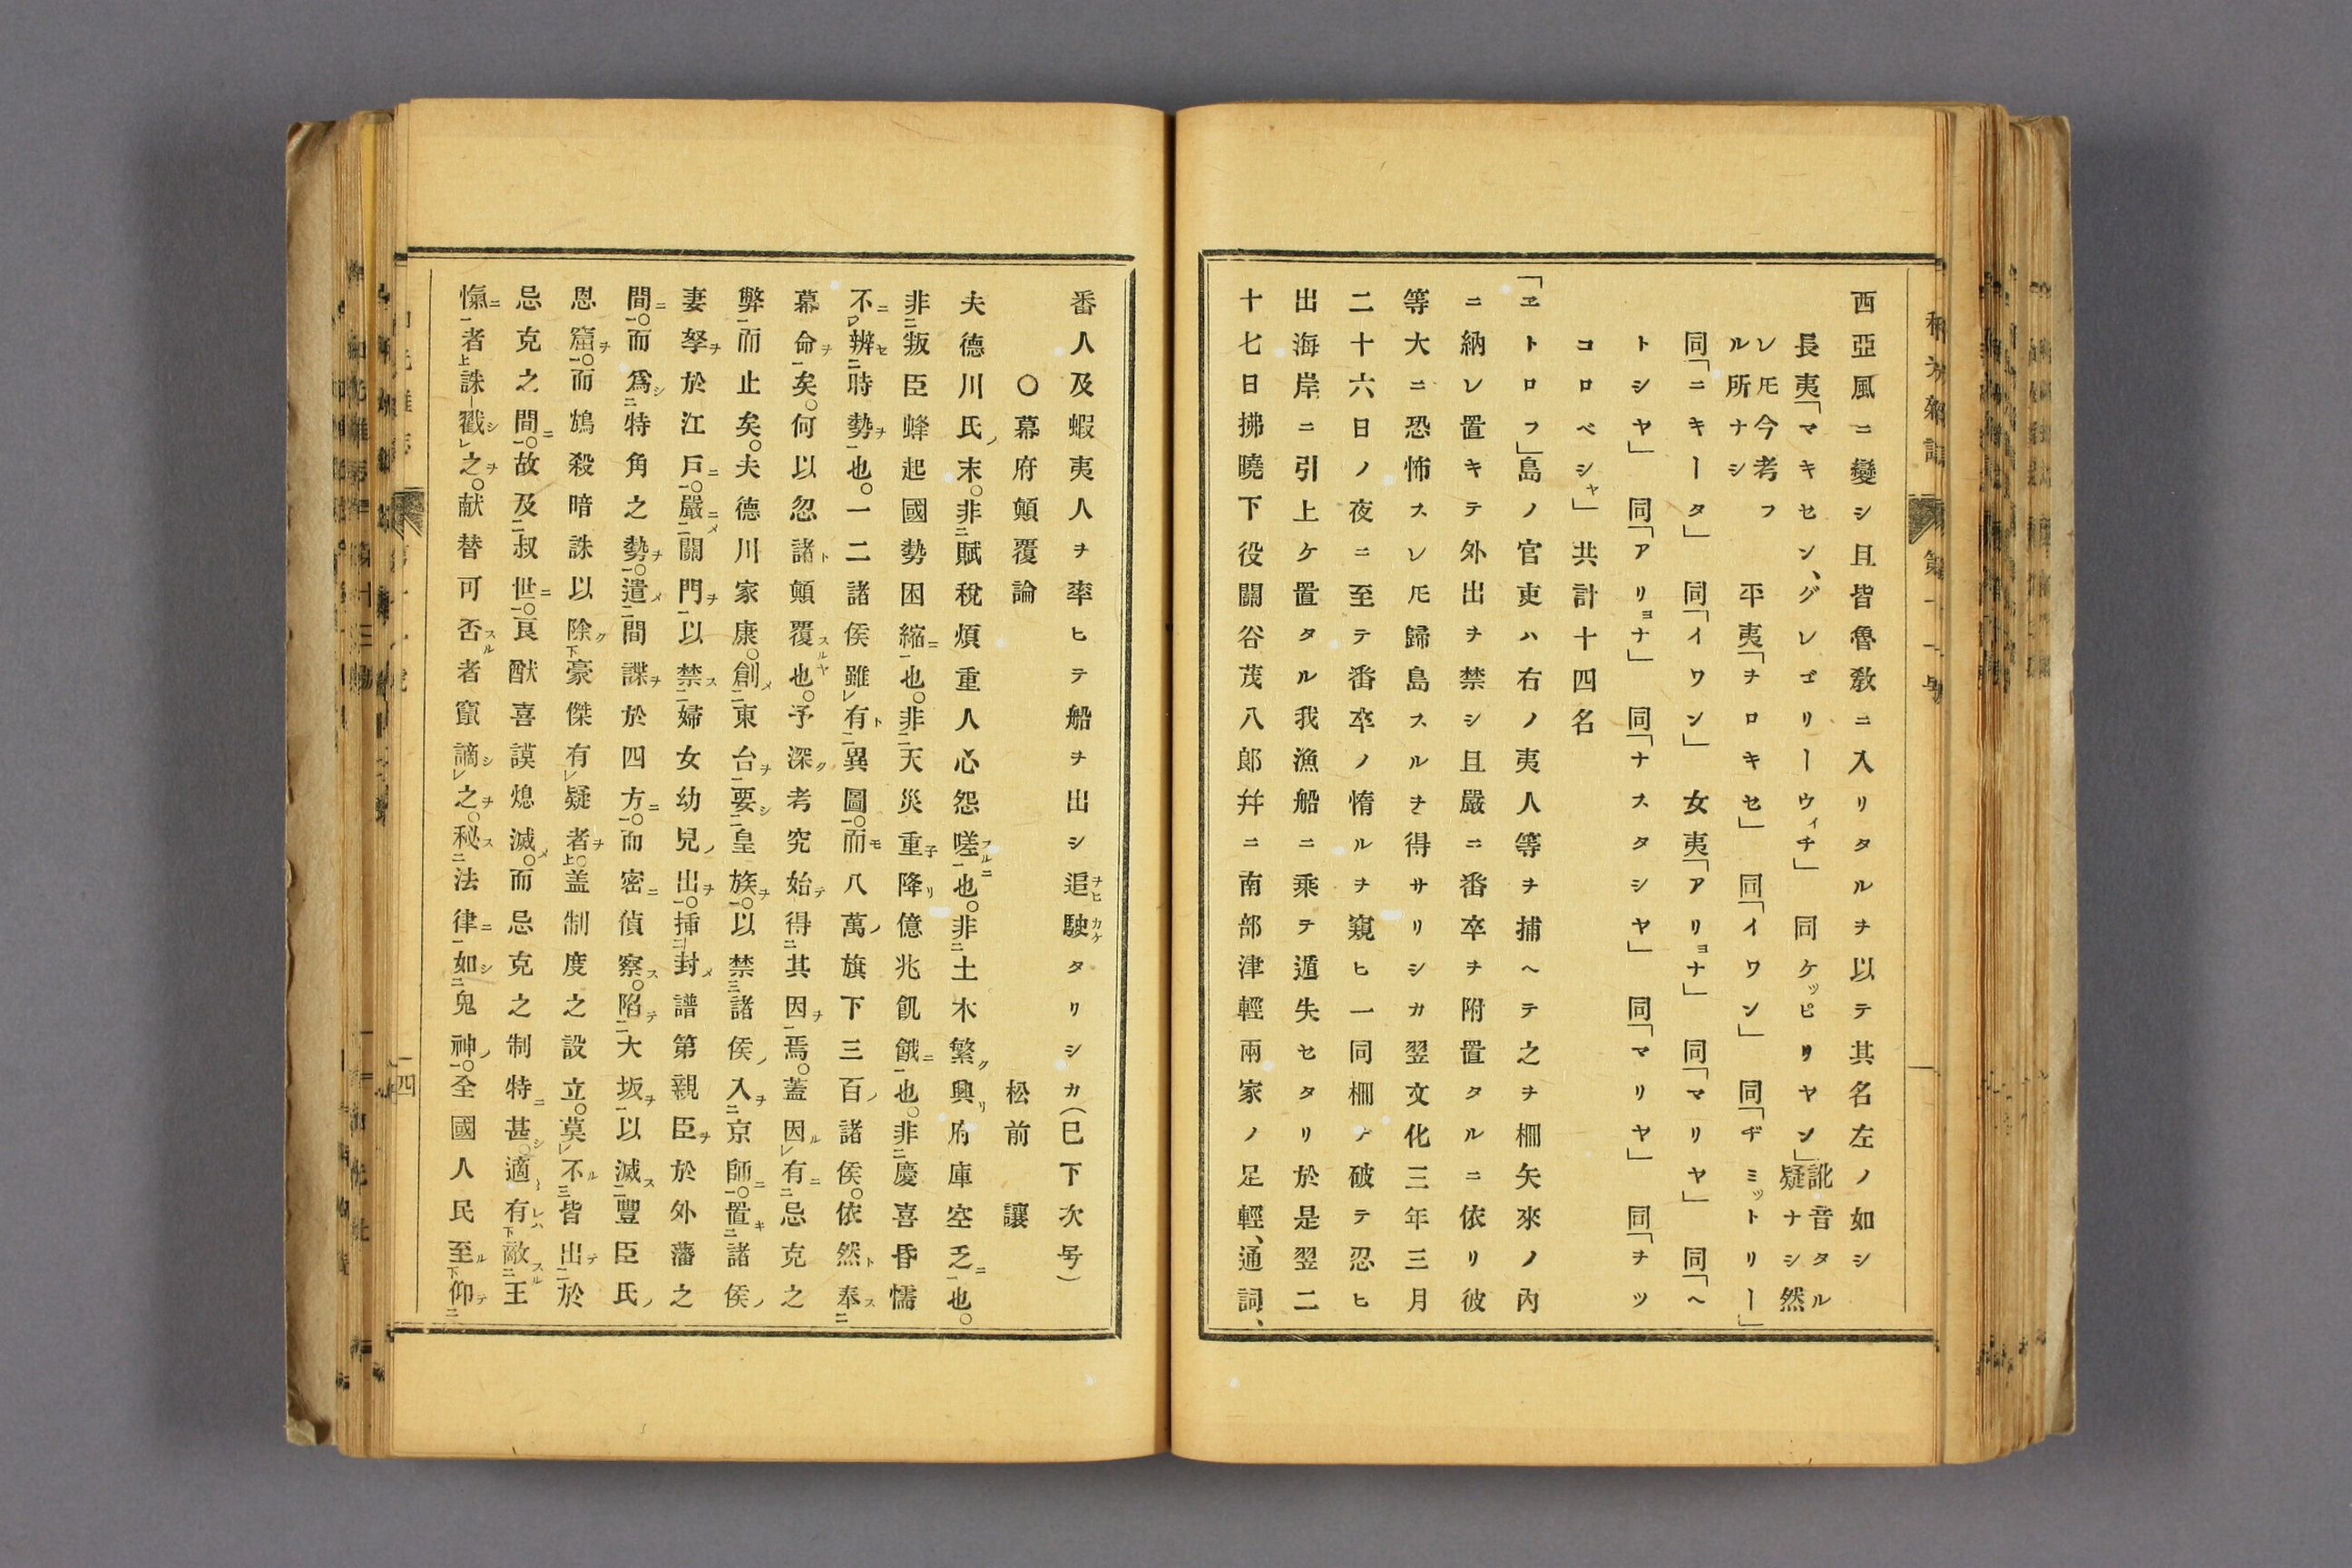 西亞風ニ變シ且皆魯敎ニ入リタルヲ以テ其名左ノ如シ
長夷「マキセン、グレゴリーウィチ」 同ケッピリヤン」訛音タル疑ナシ然
レ𪜈今考フル所ナシ 平夷「ヲロキセ」 同「イワン」 同「ヂミットリー」
同「ニキータ」 同「イワン」 女夷「アリョナ」 同「マリヤ」 同「ヘ
トシヤ」 同「アリョナ」 同「ナスタシヤ」 同「マリヤ」 同「チツ
コロベシャ」共計十四名
「ヱトロフ」島ノ官吏ハ右ノ夷人等ヲ捕ヘテ之ヲ柵矢來ノ內
ニ納レ置キテ外出ヲ禁シ且嚴ニ番卒ヲ附置タルニ依リ彼
等大ニ恐怖スレ𪜈歸島スルヿヲ得サリシカ翌文化三年三月
二十六日ノ夜ニ至テ番卒ノ惰ルヲ窺ヒ一同柵ヲ破テ忍ヒ
出海岸ニ引上ケ置タル我漁船ニ乘テ遁失セタリ於是翌二
十七日拂曉下役關谷茂八郎幷ニ南部津輕兩家ノ足輕、通詞、
番人及蝦夷人ヲ率ヒテ船ヲ出シ追駛タリシカ(已下次号)
〇幕府顚覆論 松前 讓
夫德川氏ノ末。非賦稅煩重人心怨嗟也。非土木繁興府庫空乏也。
非叛臣蜂起國勢困縮也。非天災重降億兆飢餓也。非慶喜昏懦
不辨時勢也。一二諸侯雖有異圖。而八萬旗下三百諸侯。依然奉
幕命矣。何以忽諸顚覆也。予深考究始得其因焉。蓋因有忌克之
弊而止矣。夫德川家康。創東台要皇族。以禁諸侯入京師。置諸侯
妻孥於江戶。嚴關門以禁婦女幼兒出。挿封譜第親臣於外藩之
間。而爲特角之勢。遣間諜於四方。而密偵察。陷大坂以滅豐臣氏
恩窟。而鴆殺暗誅以除豪傑有疑者。盖制度之設立。莫不皆出於
忌克之間。故及叔世。良猷喜謨熄滅。而忌克之制特甚。適有敵王
愾者誅戳之。献替可否者竄謫之。秘法律如鬼神。全國人民至仰